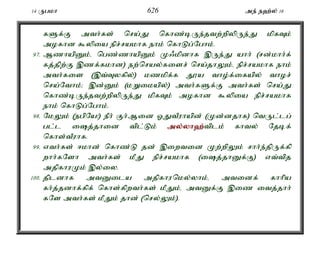 14 ருபமா 626 அந் நஹ்ல் 16
களுக்கு அவர்கள் செய்து கொண்டிருந்தவற்றிலிருந்து மிகவும்
அழகான கூலியை நிச்சயமாக நாம் கொடுப்போம்.
97. ஆணாயினும், பெண்ணாயினும் முஃமினாக இருந்து யார் (சன்மார்க்
கத்திற்கு இணக்கமான) நற்செயல்களைச் செய்தாலும், நிச்சயமாக நாம்
அவர்களை (இவ்வுலகில்) மணமிக்க தூய வாழ்க்கையில் வாழச்
செய்வோம்; இன்னும் (மறுமையில்) அவர்களுக்கு அவர்கள் செய்து
கொண்டிருந்தவற்றிலிருந்து மிகவும் அழகான கூலியை நிச்சயமாக
நாம் கொடுப்போம்.
98. மேலும் (நபியே!) நீர் குர்ஆனை ஓதுவீராயின் (முன்னதாக) வெருட்டப்
பட்ட ஷைத்தானை விட்டும் அல்லாஹ்விடம் காவல் தேடிக்
கொள்வீராக.
99. எவர்கள் ஈமான் கொண்டு தன் இறைவனை முற்றிலும் சார்ந்திருக்கி
றார்களோ அவர்கள் மீது நிச்சயமாக (ஷைத்தானுக்கு) எவ்வித
அதிகாரமும் இல்லை.
100. திடனாக அவனுடைய அதிகாரமெல்லாம், அவனைக் காரிய
கர்த்தனாக்கிக் கொள்கிறவர்கள் மீதும், அவனுக்கு இணை வைத்தார்
களே அவர்கள் மீதும் தான் (செல்லும்).